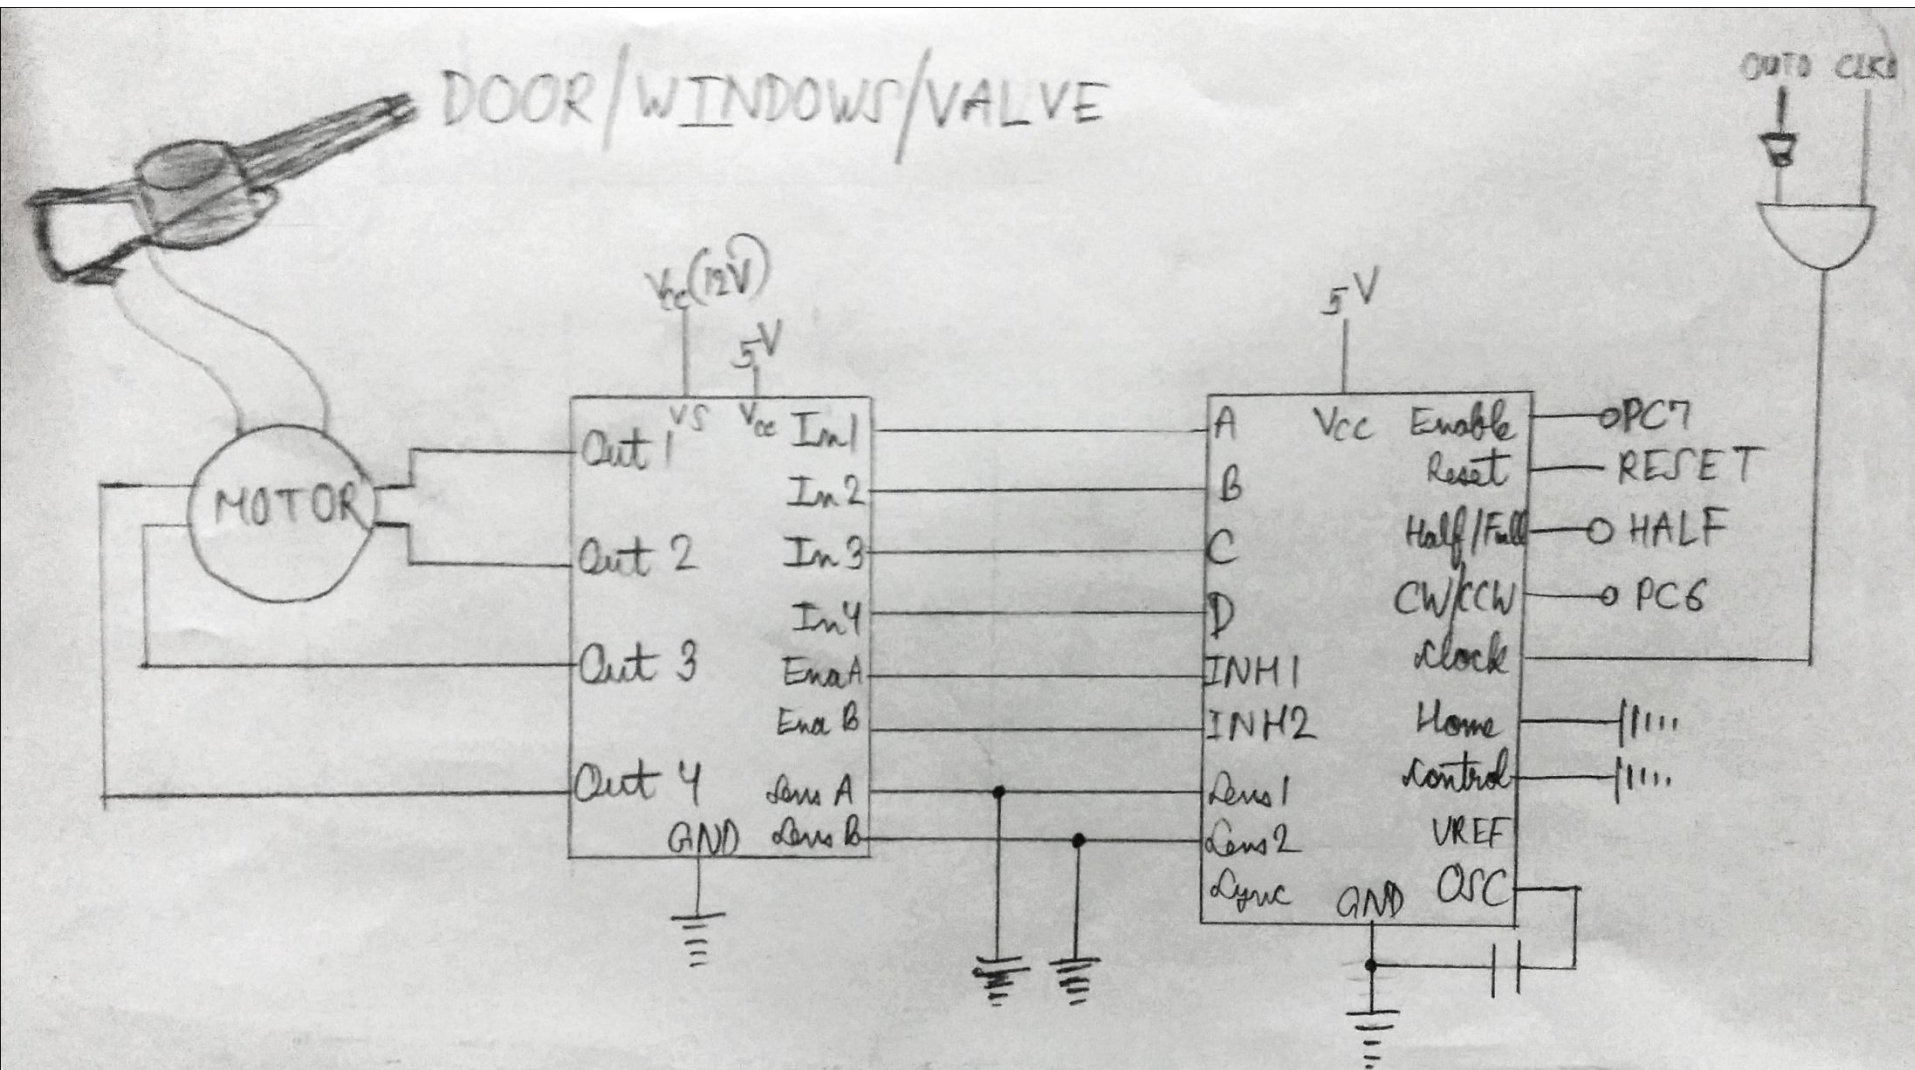 OUT0 CLK0
DOOR/WINDOWS/VALVE
Vcc(12V)
5V
5V
MOTOR
VS
Vcc
Out 1
Out 2
Out 3
Out 4
GND
In1
In2
In3
In4
EnaA
Ena B
Sens A
Sens B
A
B
C
D
INH1
INH2
Sens1
Sens2
Sync
Vcc
GND
Enable
Reset
Half/Full
CW/CCW
Clock
Home
Control
VREF
OSC
PC7
RESET
HALF
PC6